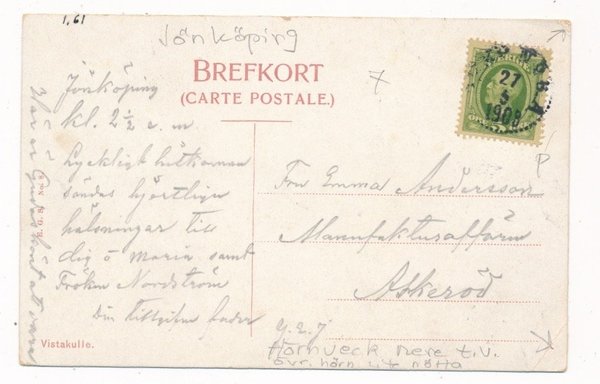 1,61
Jönköping
BREFKORT
(CARTE POSTALE.)
7
27
5
1908
Jönköping
kl. 2½ e. m
Lyckligt hitkomna
sändas hjärtliga
hälsningar till
dig o Maria samt
Fröken Nordström
Din tillgifne fader
Fru Emma Andersson
Manufakturaffären
Askeröd
P
Vistakulle.
Hörnveck nere t.v.
övr. hörn lite nötta